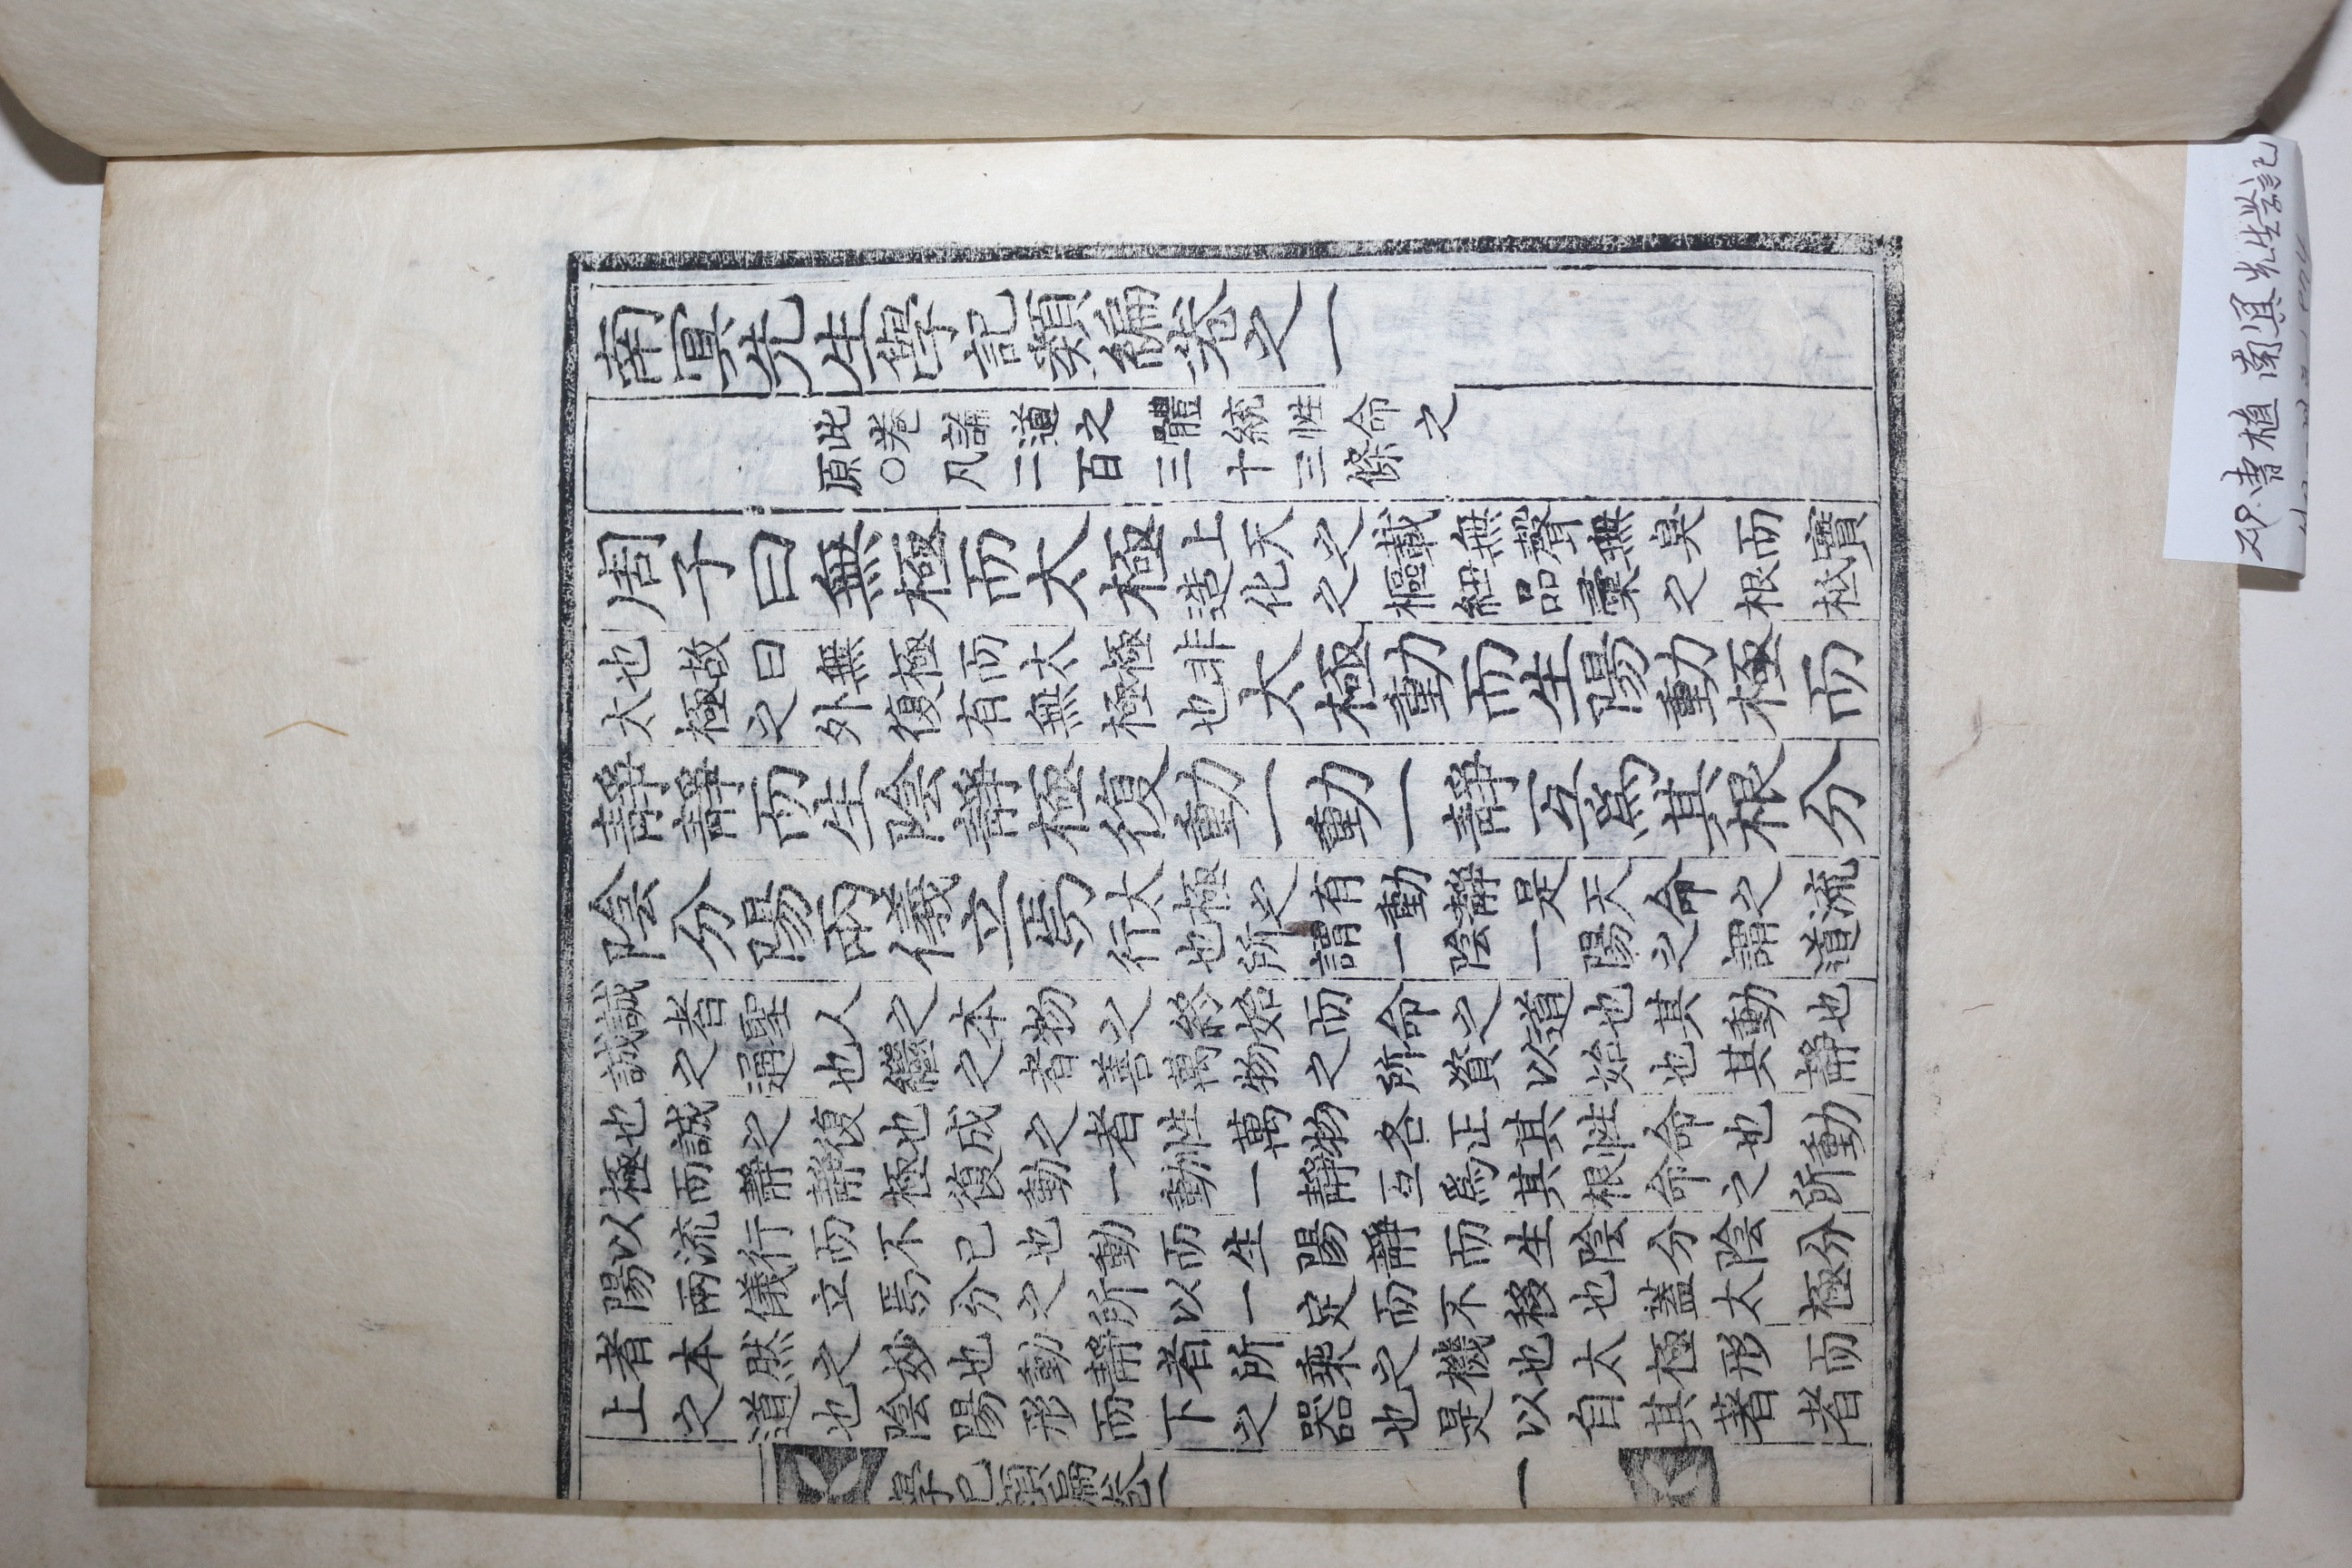 南冥先生學記類編卷之一
此卷論道之體統性命之
原○凡二百三十三條
周子曰無極而太極
上天之載無聲無臭而實
造化之樞紐品彙之根柢
也故曰無極而太極非
太極之外復有無極也
太極動而生陽動極而
靜靜而生陰靜極復動一動一靜互爲其根分
陰分陽兩儀立焉
太極之有動靜是天命之流
行也所謂一陰一陽之謂道
誠者聖人之本物之終始而命之道也其動也
誠之通也繼之者善萬物之所資以始也其靜
也誠之復也成之者性萬物各正其性命也動
極而靜靜極復動一動一靜互爲其根命之所
以流行而不已也動而生陽靜而生陰分陰分
陽兩儀立焉分之所以一定而不移也蓋太極
者本然之妙也動靜者所乘之機也太極形而
上之道也陰陽形而下之器也是以自其著者
學記類編卷一
一
29.曺植 南冥先生学記